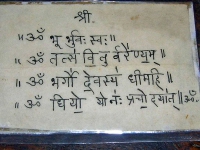 श्री.
॥ ॐ भू र्भुवः स्वः॥
॥ ॐ तत्स॑ वि॒तु र्वरे॑ण्य॒म्॥
॥ ॐ भर्गो॑ दे॒वस्य॑ धीमहि॑॥
॥ ॐ धियो॒ यो नः॑ प्रचो॒दया॑त्॥ॐ.